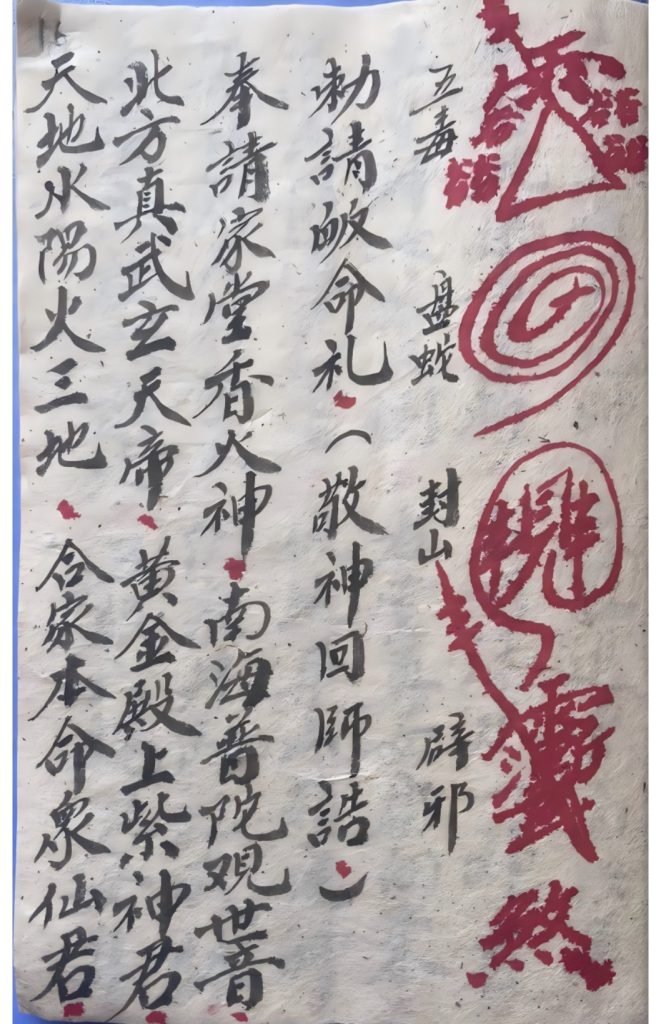 五毒 盘蛇 封山 辟邪
勅請皈命礼（敬神回師誥）
奉請家堂香火神 南海普陀观世音
北方真武玄天帝 黄金殿上紫神君
天地水陽火三地 合家本命众仙君